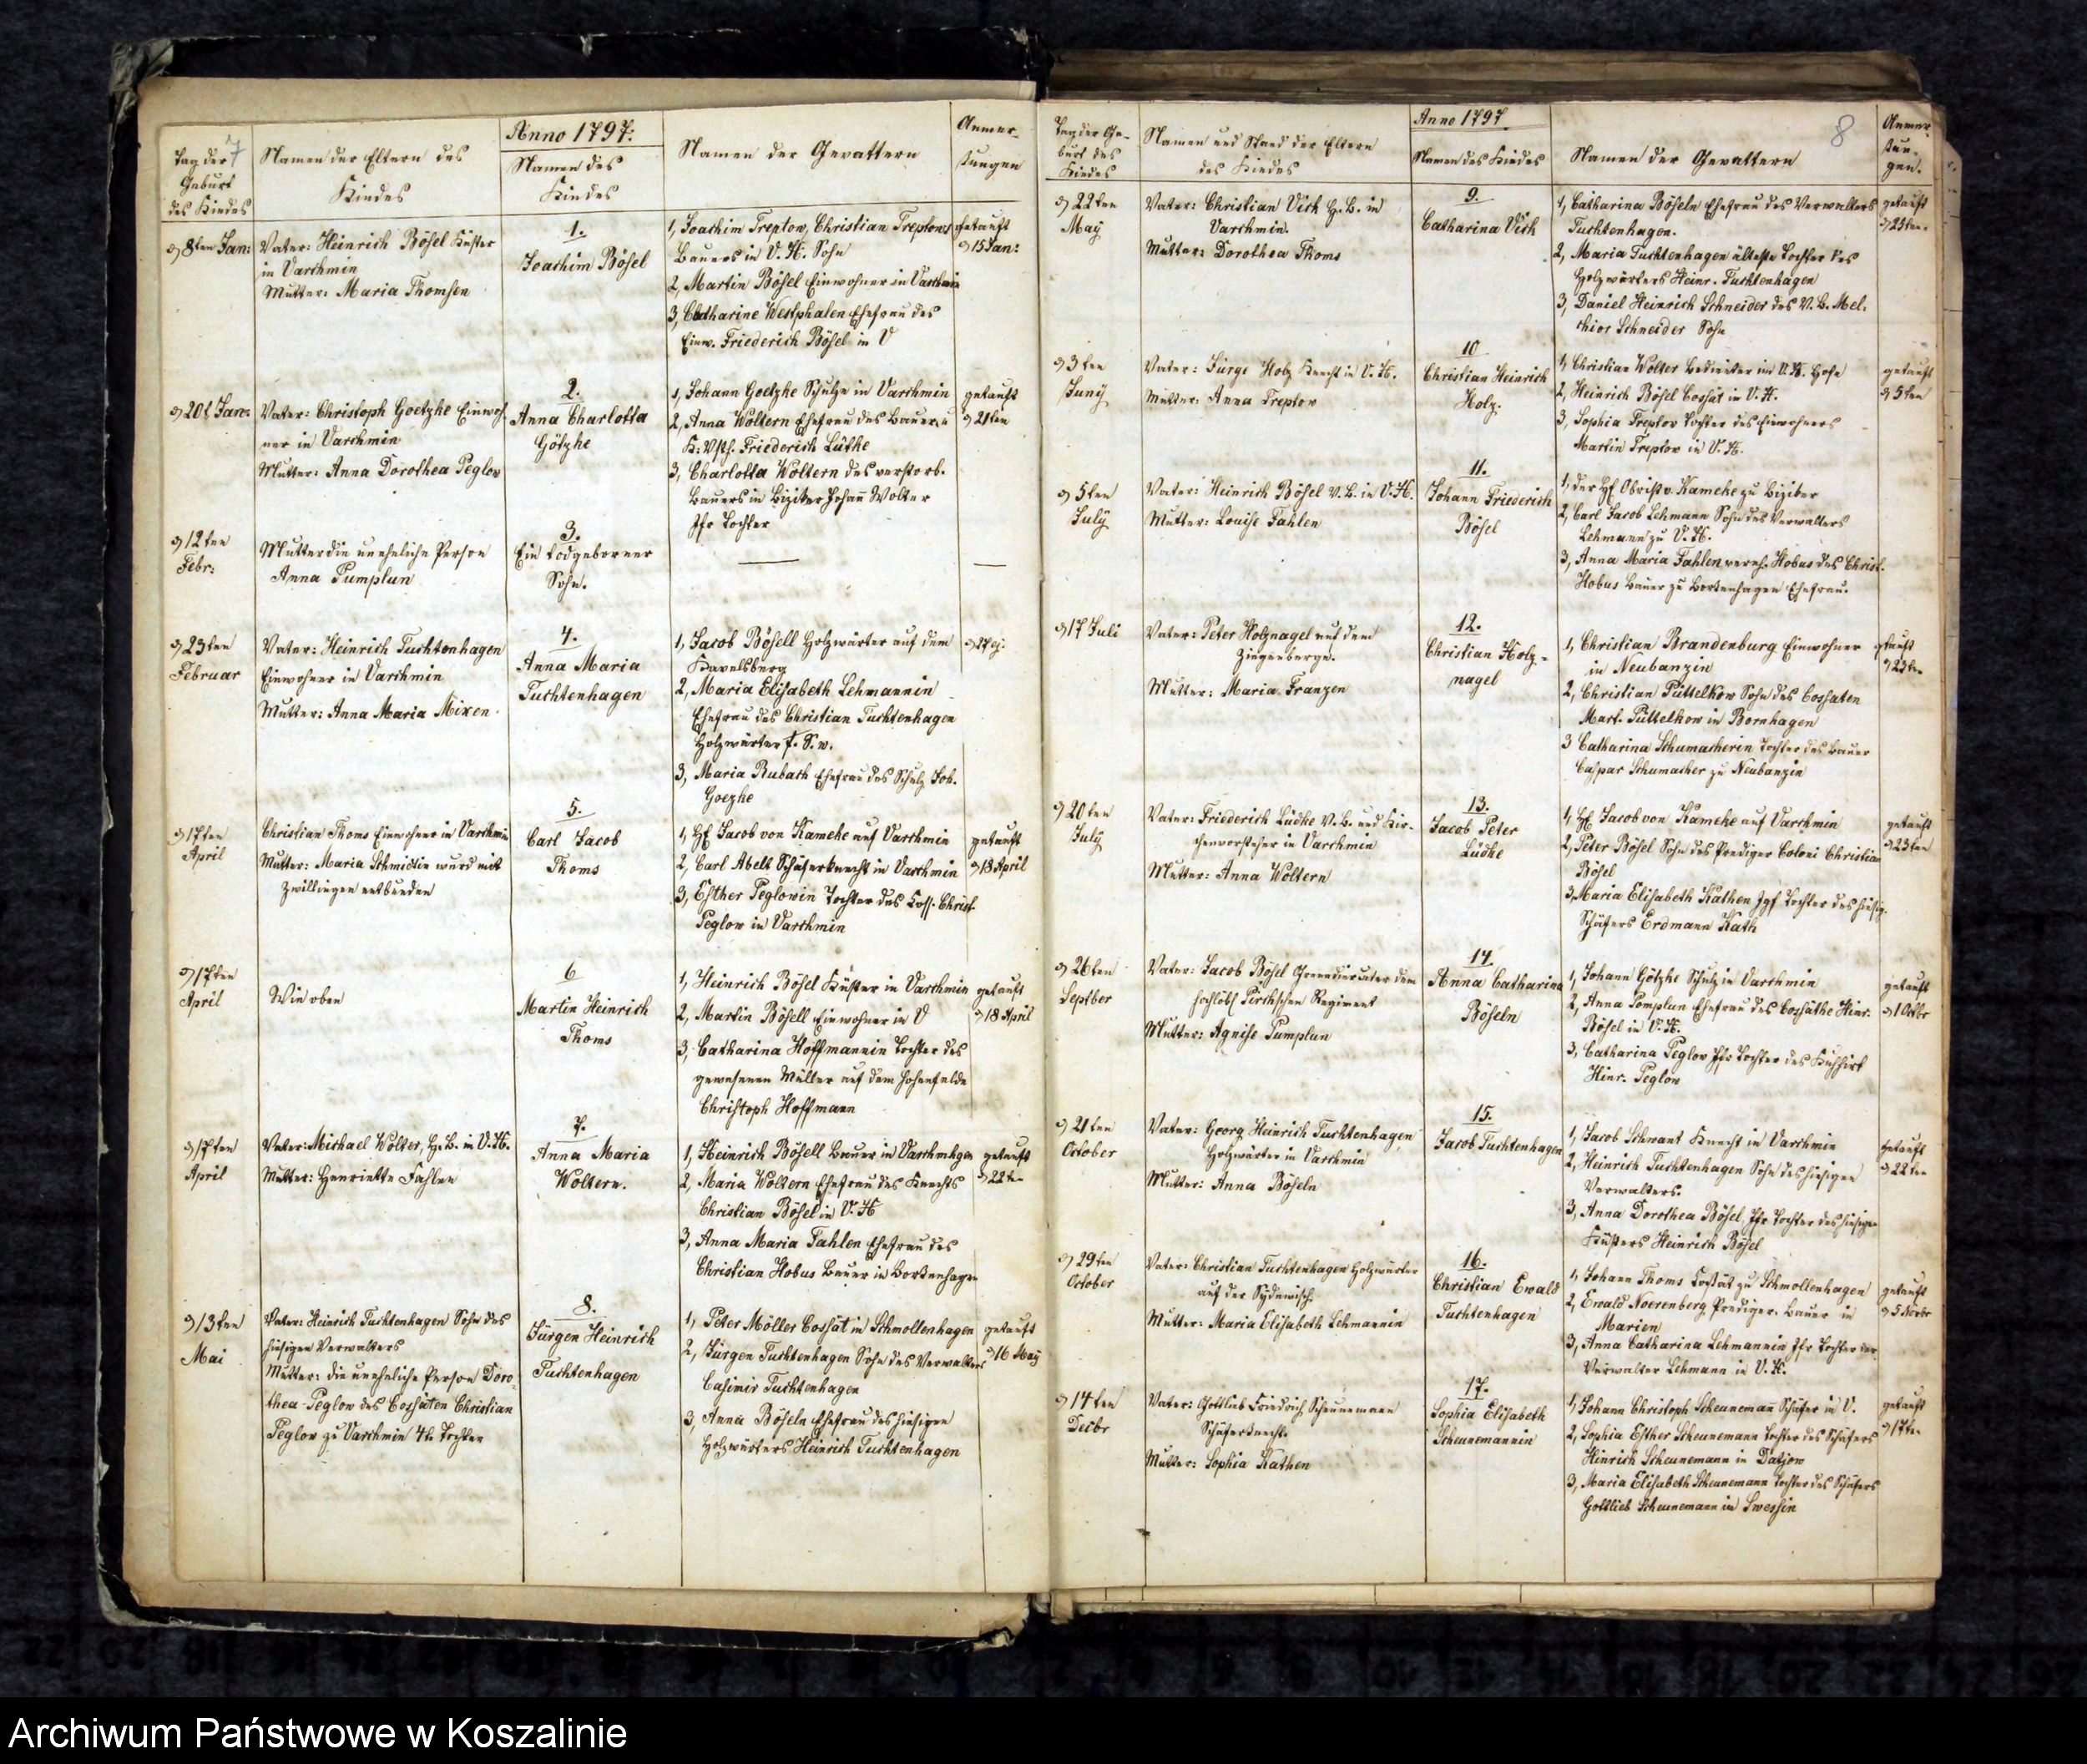 7
Anno 1797:
Tag der
Geburt
des Kindes
Namen der Eltern des
Kindes
Namen des
Kindes
Namen der Gevattern
Anmer-
kungen
d 8ten Jan:
Vater: Heinrich Bösel Küster
in Varchmin
Mutter: Maria Thomsen
1.
Joachim Bösel
1, Joachim Treptow, Christian Treptows
Bauers in V. H. Sohn
2, Martin Bösel Einwohner in Varchmin
3, Catharine Westphalen Ehefrau des
Einw. Friederich Bösel in V
getauft
d 15 Jan:
d 20t Jan:
Vater: Christoph Goetzke Einwoh
ner in Varchmin
Mutter: Anna Dorothea Peglow
2.
Anna Charlotta
Götzke
1, Johann Goetzke Schulze in Varchmin
2, Anna Woltern Ehefrau des Bauer u
K: Vsth. Friederich Lüthke
3, Charlotta Woltern des verstorb.
Bauers in Biziker Johan Wolter
Jfr Tochter
getauft
d 21ten
d 12ten
Febr:
Mutter die uneheliche Person
Anna Pumplun
3.
Ein todgeborner
Sohn.
d 23ten
Februar
Vater: Heinrich Tuchtenhagen
Einwohner in Varchmin
Mutter: Anna Maria Mixen
4.
Anna Maria
Tuchtenhagen
1, Jacob Bösell Holzwärter auf dem
Kavelsberg
2, Maria Elisabeth Lehmannin
Ehefrau des Christian Tuchtenhagen
Holzwärter f. S. w.
3, Maria Rubach Ehefrau des Schulz Joh.
Goezke
d 17ten
April
Christian Thoms Einwohner in Varchmin
Mutter: Maria Schmidtin wurd mit
Zwillingen entbunden
5.
Carl Jacob
Thoms
1, H Jacob von Kameke auf Varchmin
2, Carl Abelt Schäferknecht in Varchmin
3, Esther Peglowin Tochter des Coss. Christ.
Peglow in Varchmin
getauft
d 18 April
d 17ten
April
Wie oben
6
Martin Heinrich
Thoms
1, Heinrich Bösel Küster in Varchmin
2, Martin Bösell Einwohner in V
3, Catharina Hoffmannin Tochter des
gewesenen Müller auf dem Hohenfelde
Christoph Hoffmann
getauft
d 18 April
d 17ten
April
Vater: Michael Wolter, H. B. in V. H.
Mutter: Henriette Fahlen
7.
Anna Maria
Woltern.
1, Heinrich Bösell Bauer in Varchmhgen
2, Maria Woltern Ehefrau des Knechts
Christian Bösel in V. H
3, Anna Maria Fahlen Ehefrau des
Christian Hobus Bauer in Borkenhagen
getauft
d 22ten
d 13ten
Mai
Vater: Heinrich Tuchtenhagen Sohn des
hiesigen Verwalters
Mutter: die uneheliche Person Doro-
thea Peglow des Cossäten Christian
Peglow zu Varchmin 4te Tochter
8.
Jürgen Heinrich
Tuchtenhagen
1, Peter Möller Cossät in Schmollenhagen
2, Jürgen Tuchtenhagen Sohn des Verwalters
Casimir Tuchtenhagen
3, Anna Böseln Ehefrau des hiesigen
Holzwärters Heinrich Tuchtenhagen
getauft
d 16 May
8
Anno 1797
Tag der Ge-
burt des
Kindes
Namen und Stand der Eltern
des Kindes
Namen des Kindes
Namen der Gevattern
Anmer-
kun-
gen.
d 22ten
May
Vater: Christian Vick H. B. in
Varchmin.
Mutter: Dorothea Thoms
9.
Catharina Vick
1, Catharina Böseln Ehefrau des Verwalters
Tuchtenhagen.
2, Maria Tuchtenhagen älteste Tochter des
Holzwärters Heinr. Tuchtenhagen
3, Daniel Heinrich Schneider des V. B. Mel-
chior Schneider Sohn
getauft
d 25ten
d 3ten
Juny
Vater: Jürge Holz Knecht in V. H.
Mutter: Anna Treptow
10
Christian Heinrich
Holz.
1, Christian Wolter Bedienter im V. H. Hofe
2, Heinrich Bösel Cossät in V. H.
3, Sophia Treptow Tochter des Einwohners
Martin Treptow in V. H.
getauft
d 5ten
d 5ten
July
Vater: Heinrich Bösel V. B. in V. H.
Mutter: Louise Fahlen
11.
Johann Friederich
Bösel
1, der H Obrist v. Kameke zu Biziker
2, Carl Jacob Lehmann Sohn des Verwalters
Lehmann zu V. H.
3, Anna Maria Fahlen verehl. Hobus des Christ.
Hobus Bauer zu Borkenhagen Ehefrau.
d 17 Juli
Vater: Peter Holznagel auf dem
Ziegenberge.
Mutter: Maria Franzen
12.
Christian Holz-
nagel
1, Christian Brandenburg Einwohner
in Neubanzin
2, Christian Püttelkow Sohn des Cossaten
Mart. Püttelkow in Bornhagen
3 Catharina Schumacherin Tochter des Bauer
Caspar Schumacher zu Neubanzin
getauft
d 23ten
d 20ten
July
Vater: Friederich Lüdke V. B. und Kir-
chenvorsteher in Varchmin
Mutter: Anna Woltern
13.
Jacob Peter
Lüdke
1, H Jacob von Kameke auf Varchmin
2, Peter Bösel Sohn des Prediger Coloni Christian
Bösel
3, Maria Elisabeth Kathen Jgf Tochter des hiesig.
Schäfers Erdmann Kath
getauft
d 23ten
d 26ten
Septber
Vater: Jacob Bösel Grenadier unter dem
hochlöbl Pirchschen Regiment
Mutter: Agnise Pumplun
14.
Anna Catharina
Böseln
1, Johann Götzke Schulz in Varchmin
2, Anna Pomplun Ehefrau des Cossäthe Hinr.
Bösel in V. H.
3, Catharina Peglow Jfr Tochter des Kuhhirt
Hinr. Peglow
getauft
d 1 Octbr
d 21ten
October
Vater: Georg Heinrich Tuchtenhagen
Holzwärter in Varchmin
Mutter: Anna Böseln
15.
Jacob Tuchtenhagen
1, Jacob Schwant Knecht in Varchmin
2, Heinrich Tuchtenhagen Sohn des hiesigen
Verwalters.
3, Anna Dorothea Bösel Jfr Tochter des hiesigen
Küsters Heinrich Bösel
getauft
d 22ten
d 29ten
October
Vater: Christian Tuchtenhagen Holzwärter
auf der Sydowisch.
Mutter: Maria Elisabeth Lehmannin
16.
Christian Ewald
Tuchtenhagen
1, Johann Thoms Cossät zu Schmollenhagen
2, Ewald Noerenberg Prediger. Bauer in
Marien
3, Anna Catharina Lehmannin Jfr Tochter der
Verwalter Lehmann in V. H.
getauft
d 5 Novbr
d 14ten
Decbr
Vater: Gottlieb Friedrich Scheunemann
Schäferknecht.
Mutter: Sophia Kathen
17.
Sophia Elisabeth
Scheunemannin
1, Johann Christoph Scheunemañ Schäfer in V.
2, Sophia Esther Scheunemann Tochter des Schäfers
Hinrich Scheunemann in Datjow
3, Maria Elisabeth Scheunemann Tochter des Schäfers
Gottlieb Scheunemann in Swessin
getauft
d 17ten
Archiwum Państwowe w Koszalinie